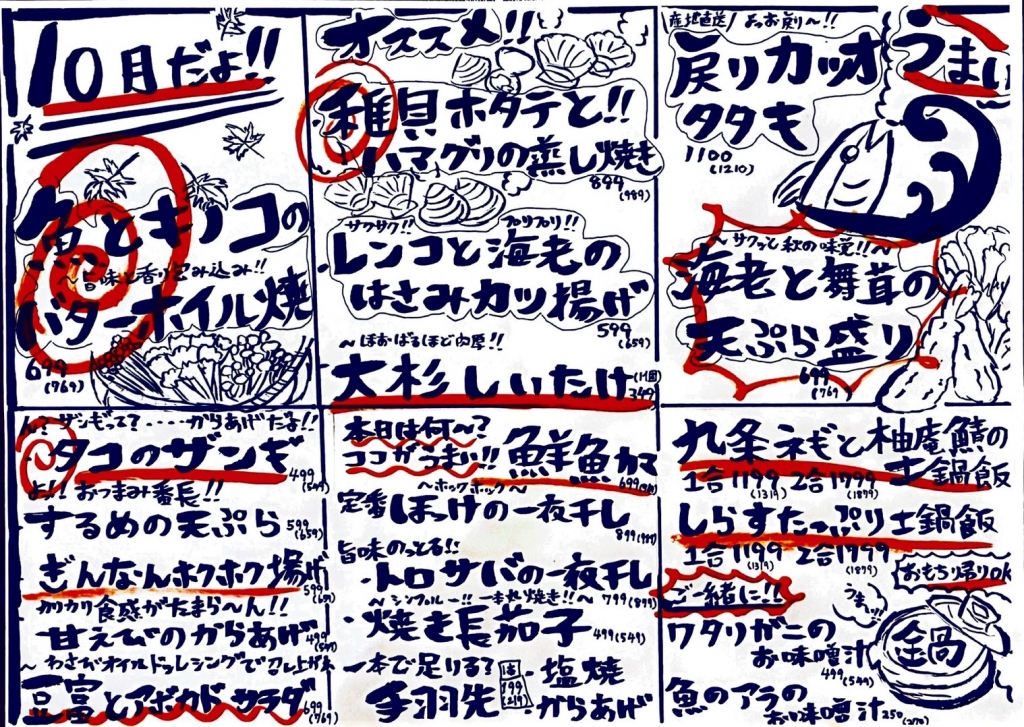 10月だよ!!
魚とキノコの
〜旨味と香り包み込み!!
バターホイル焼
699
(769)
オススメ!!
稚貝ホタテと!!
ハマグリの蒸し焼き
899
(989)
サクサク!! プリプリ!!
レンコと海老の
はさみカツ揚げ
599
(659)
〜ほおばるほど肉厚!!
大杉しいたけ(1個)
349
産地直送! よぉお戻〜!!
戻りカツオ
タタキ
1100
(1210)
うまい
〜サクッと秋の味覚!!〜
海老と舞茸の
天ぷら盛り
699
(769)
ん?ザンギって?‥‥からあげだよ!!
タコのザンギ
499
(549)
よ!!おつまみ番長!!
するめの天ぷら
599
(659)
ぎんなんホクホク揚げ
599
(659)
カリカリ食感がたまら〜ん!!
甘えびのからあげ
499
(549)
〜わさびオイルドレッシングで召し上がれ
豆富とアボカドサラダ
699
(769)
本日は何〜?
ココがうまい!! 鮮魚カマ
699(769)
〜ホックホック〜
定番 ほっけの一夜干し
899
旨味のってる!!
・トロサバの一夜干し
799(899)
〜シンプル〜!!一本丸焼き!!〜
・焼き長茄子
499(549)
一本で足りる?
手羽先
1本
199
(219)
・塩焼
・からあげ
九条ネギと柚庵鯖の
土鍋飯
1合1199(1319) 2合1799(1879)
しらすたっぷり土鍋飯
1合1199(1319) 2合1799(1879)
おもち帰りOK
ご一緒に!!
うまい!!
ワタリガニの
お味噌汁
499(549)
魚のアラの
お味噌汁250(270)
鍋